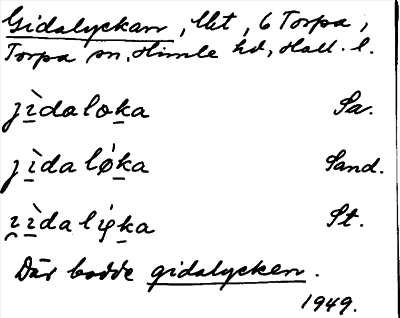 Gidalyckan, lht, 6 Torpa,
Torpa sn, Himle hd, Hall. l.
jìdaloka Sa.
jìdaløka Sand.
ı̯ìdaliφka St.
Där bodde gidalycken.
1949.